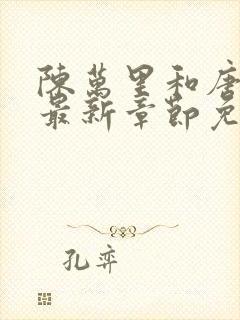 陳萬里和唐
最新章節免
孔弈